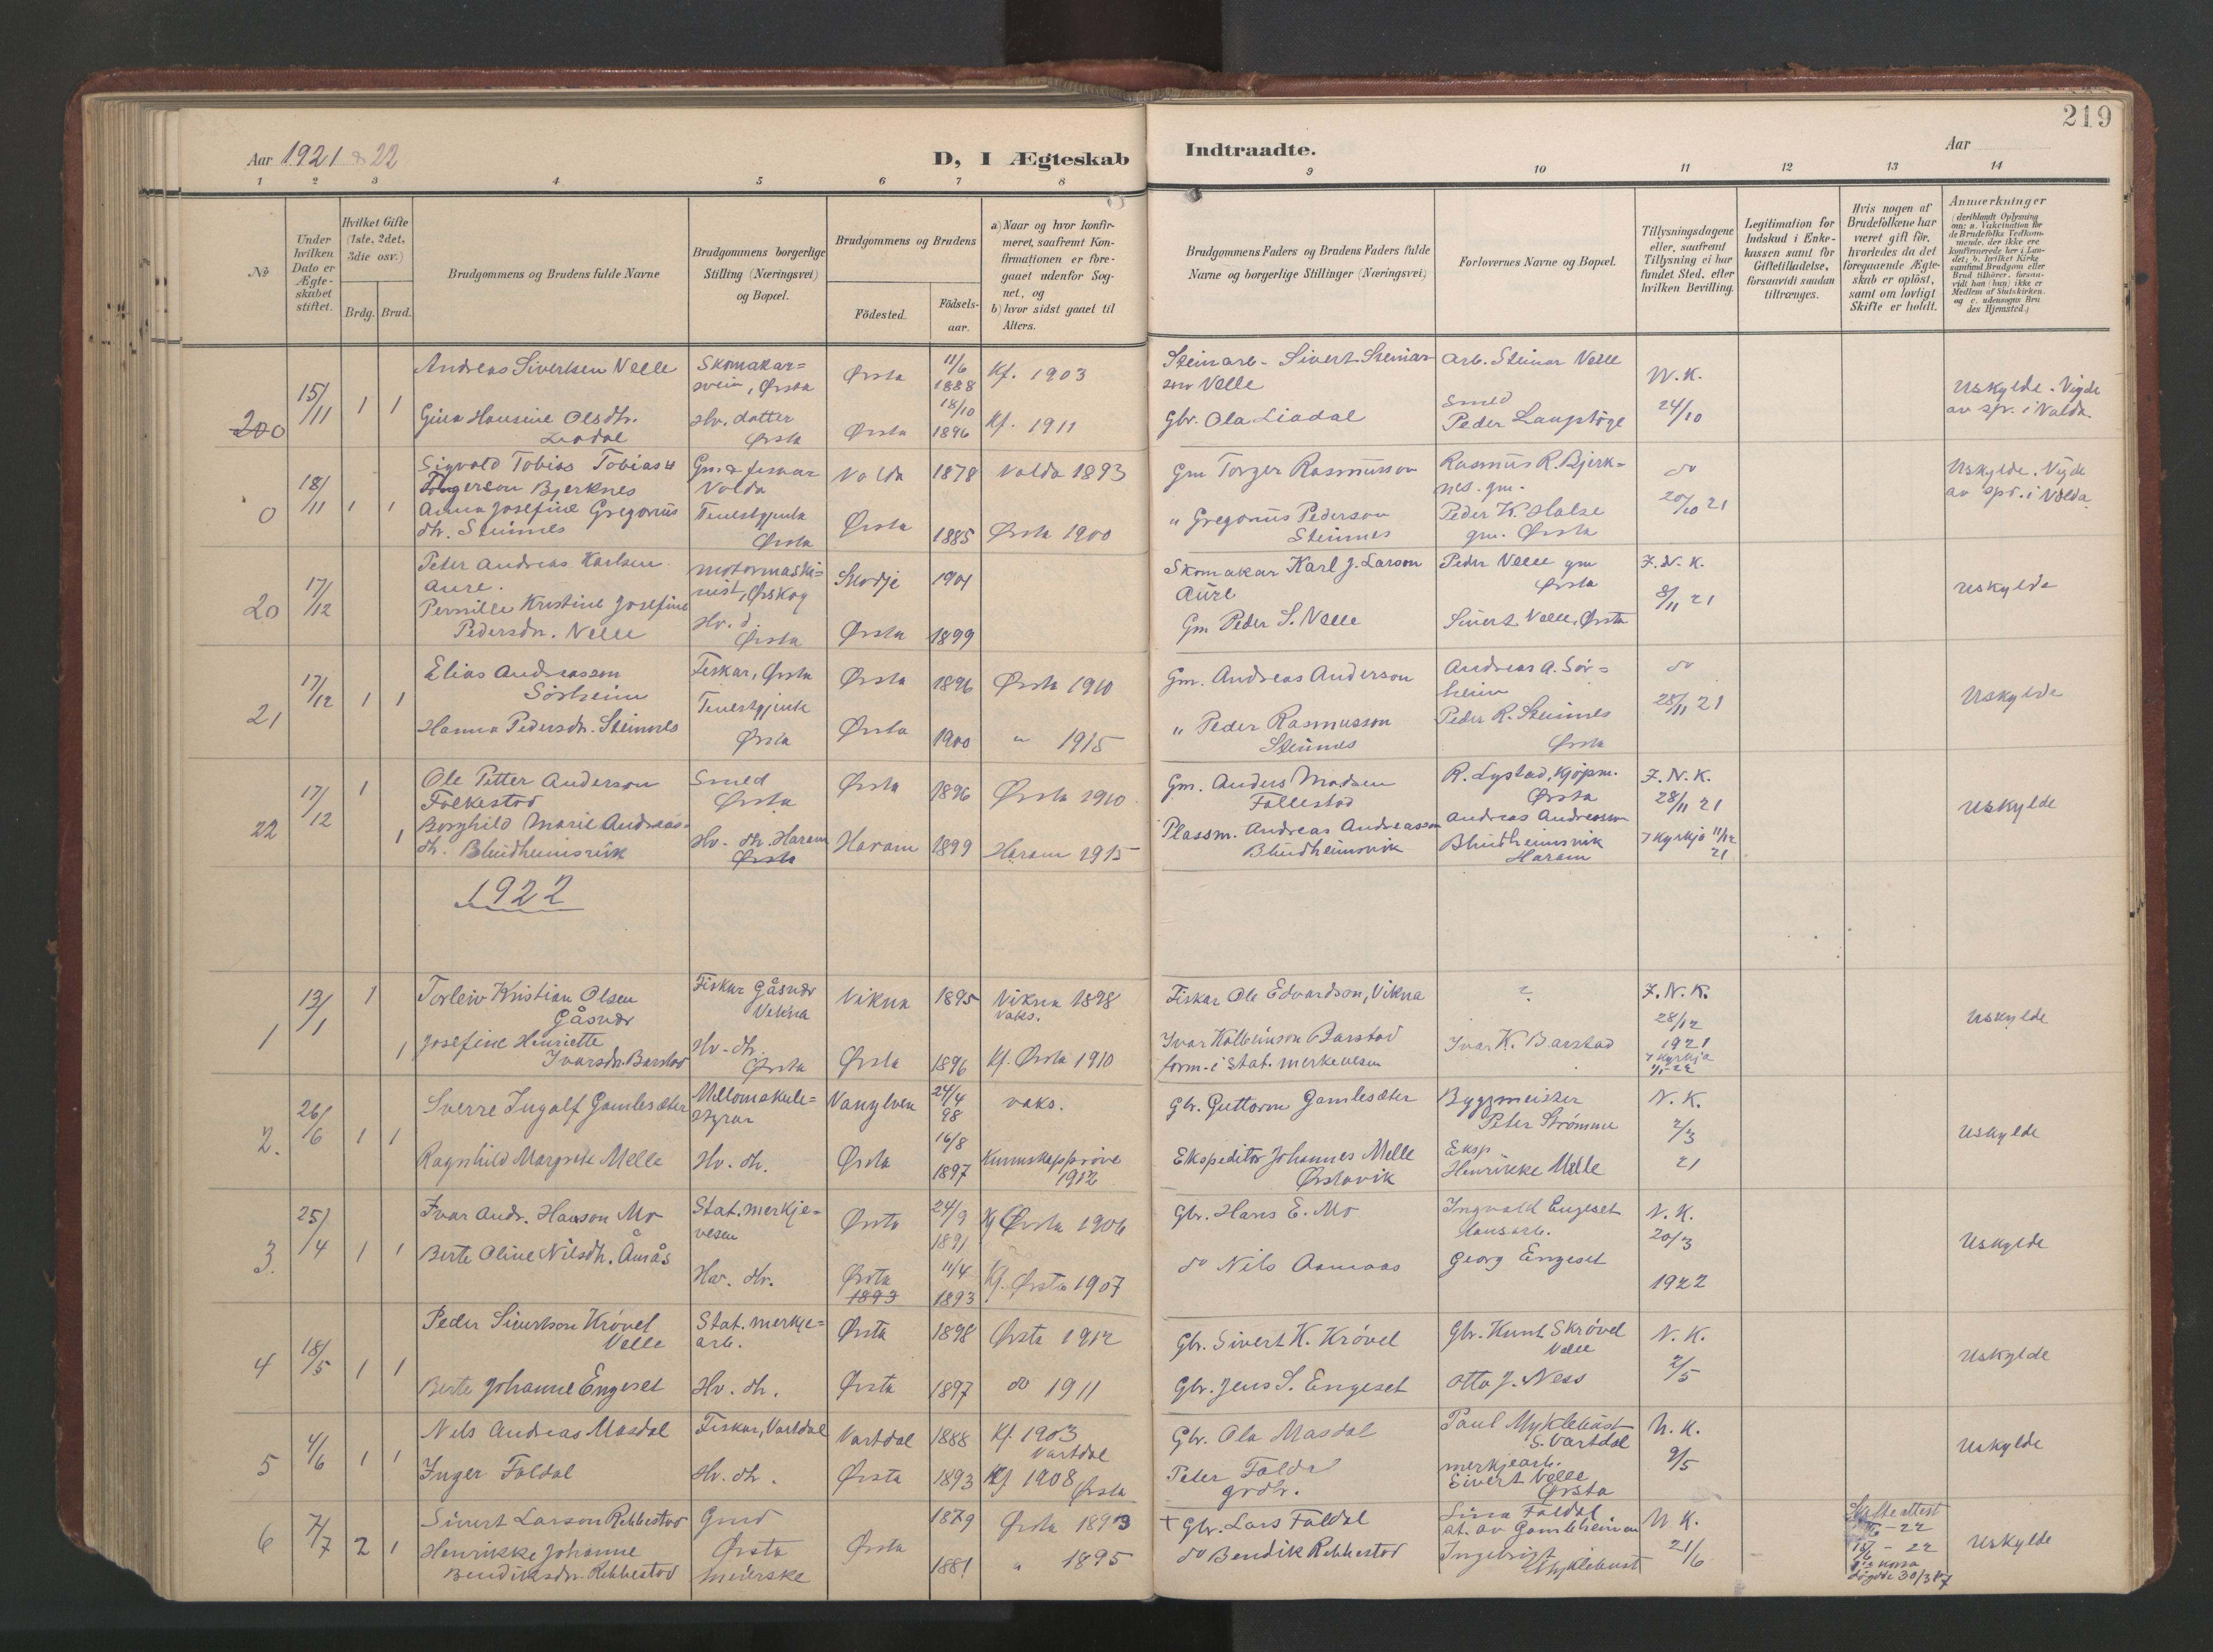 219
Aar 1921 & 22
D, I Ægteskab Indtraadte.
Aar
1 2 3 4 5 6 7 8 9 10 11 12 13 14
No
Under hvilken Dato er Ægteskabet stiftet.
Hvilket Gifte (1ste, 2det, 3die osv.)
Brdg. Brud.
Brudgommens og Brudens fulde Navne
Brudgommens borgerlige Stilling (Næringsvei) og Bopæl.
Brudgommens og Brudens
Födested.
Födselsaar.
a) Naar og hvor konfirmeret, saafremt Konfirmationen er foregaaet udenfor Sognet, og
b) hvor sidst gaaet til Alters.
Brudgommens Faders og Brudens Faders fulde Navne og borgerlige Stillinger (Næringsvei)
Forlovernes Navne og Bopæl.
Tillysningsdagene eller, saafremt Tillysning ei har fundet Sted, efter hvilken Bevilling.
Legitimation for Indskud i Enkekassen samt for Giftetilladelse, forsaavidt saadan tiltrænges.
Hvis nogen af Brudefolkene har været gift för, hvorledes da det foregaaende Ægteskab er oplöst, samt om lovligt Skifte er holdt.
Anmærkninger
(deriblandt Oplysning om: a. Vakcination for de Brudefolks Vedkommende, der ikke ere konfirmerede her i Landet; b. hvilket Kirkesamfund Brudgom eller Brud tilhörer, forsaavidt han (hun) ikke er Medlem af Statskirken. og c. udensogns Brudes Hjemsted.)
Andreas Sivertsen Velle Skomakarsvein, Ørsta Ørsta 11/6 1888 Kf. 1903 Steinarb. Sivert Steinarson Velle Arb. Steinar Velle N.K.
0 15/11 1 1 Uskylde. Vigde av spr. i Volda
Gina Hansine Olsdtr. Liadal Hv. datter Ørsta Ørsta 18/10 1896 Kf. 1911 Gbr. Ola Liadal Smed Peder 24/10
Sigvald Tobias Tobias Torgerson Bjerknes Gm. & fiskar Volda Volda 1878 Volda 1893 Gm Torger Rasmusson Rasmus R. Bjerknes. gm. do
0 18/11 1 1 Uskylde. Vigde av spr. i Volda.
Anna Josefine Gregoriusdtr. Steinnes Tenestgjenta Ørsta Ørsta 1885 Ørsta 1900 " Gregorius Pederson Steinnes Peder K. Halse gm. Ørsta 20/10 21
Peter Andreas Karlsen Aure. motormaskinist, Ørskog Skodje 1901 Skomakar Karl J. Larson Aure Peder Velle gm Ørsta F.N.K.
20 17/12 Uskylde
Pernille Kristine Josefine Pedersdtr. Velle Hv. d. Ørsta Ørsta 1899 Gm Peder S. Velle Sivert Velle, Ørsta 8/11 21
Elias Andreasson Sörheim Fiskar, Ørsta Ørsta 1896 Ørsta 1910 Gm. Andreas Anderson Andreas A. Sörheim do
21 17/12 1 1 Uskylde
Hanna Pedersdtr. Steinnes Tenestgjenta Ørsta Ørsta 1900 " 1915 " Peder Rasmusson Steinnes Peder R. Steinnes Ørsta 28/11 21
Ole Petter Anderson Folkestad Smed Ørsta Ørsta 1896 Ørsta 1910. Gm. Anders Madsen Follestad R. Lystad, Kjöpm. Ørsta F.N.K. 28/11 21
22 17/12 1 1 Uskylde
Borghild Marie Andreasdtr. Blindheimsvik Hv. dtr. Haram Ørsta Haram 1899 Haram 1915 Plassm. Andreas Andreasson Blindheimsvik Andreas Andreasson Blindheimsvik Haram I Kyrkja 11/12 21
1922
Torleiv Kristian Olsen Gåsvær Fiskar Gåsvær Vikna Vikna 1895 Vikna 1898 vaks. Fiskar Ole Edvardson, Vikna ? F.N.K. 28/12 1921
1 13/1 1 1 Uskylde
Josefine Henriette Ivarsdtr. Barstad Hv. dtr. Ørsta Ørsta 1896 Kf. Ørsta 1910 Ivar Kolbeinson Barstad form. i Stat. merkevesen Ivar K. Barstad I Kyrkja 1/1-22
Sverre Ingolf Gamlesæter Vanylven 24/4 98 vaks. Gbr. Guttorm Gamlesæter Byggmeister Peter Strömme N.K.
2. 26/6 1 1 2/3 Uskylde
Ragnhild Margrete Melle Hv. dtr. Ørsta 16/8 1897 Kunnskapspröve 1912 Ekspeditör Johannes Melle Ørstavik Eksp Henrikke Melle 21
Ivar Andr. Hanson Mo Stat. merkjevesen Ørsta 24/9 1891 Kf Ørsta 1906 Gbr. Hans E. Mo Ingvald Engeset N.K. 20/3
3. 25/4 1 1 Uskylde
Berte Oline Nilsdtr. Åmås Hv. dtr. Ørsta 1893 11/4 1893 Kf. Ørsta 1907 do Nils Aamaas Georg Engeset 1922
Peder Sivertson Krövel Velle Stat. merkjearb. Ørsta 1898 Ørsta 1912 Gbr. Sivert K. Krövel Gbr. Knut Skrövel Velle N.K.
4 18/5 1 1 Uskylde
Berte Johanne Engeset Hv. dtr. Ørsta 1897 do 1911 Gbr. Jens S. Engeset Otto J. Ness 2/5
Nils Andreas Masdal Fiskar, Vartdal Vartdal 1888 Kf. 1903 Vartdal Gbr. Ola Masdal Paul Myklebust S. Vartdal N.K.
5 4/6 1 1 Uskylde
Inger Foldal Hv. dtr. Ørsta 1893 Kf 1908 Ørsta Peter Foldal grdbr. merkjearb. Sivert Velle Ørsta 9/5
Sivert Larson Rebbestad Gmd 1879 Ørsta 1893 + Gbr. Lars Foldal Lina Foldal N.K. Skifteattest
6 7/7 2 1 Ørsta Ørsta Uskylde
Henrikke Johanne Bendiksdtr. Rebbestad meierske 1881 " 1895 do Bendik Rebbestad Ingebrigt Myklebust 21/6 döydde 30/3 17